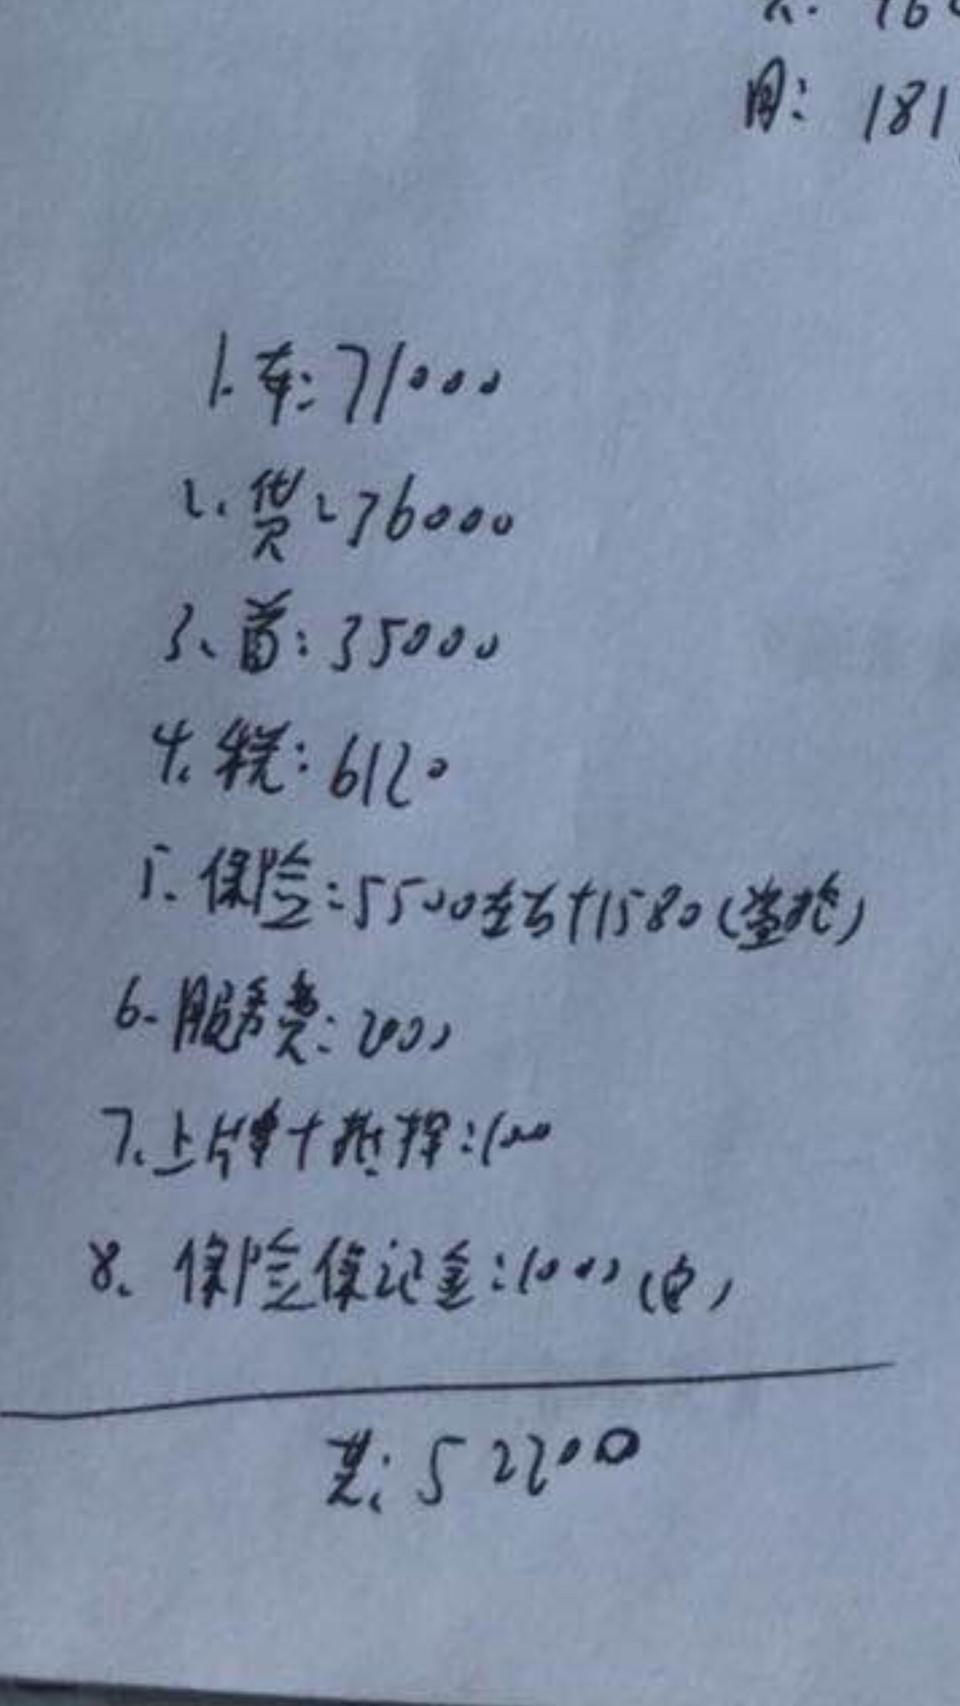 181
1.车:71000
2.贷:36000
3.首:35000
4.税:6120
5.保险:5500左右+1580(盗抢)
6.服务费:2000
7.上牌+抵押:1000
8.保险保证金:1000(退)
共:52200